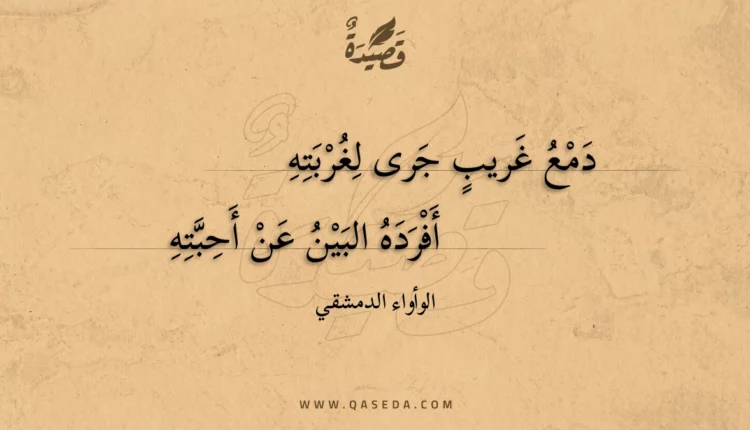 قَصِيدَةٌ
دَمْعُ غَريبٍ جَرى لِغُرْبَتِهِ
أَفْرَدَهُ البَيْنُ عَنْ أَحِبَّتِهِ
الوأواء الدمشقي
WWW.QASEDA.COM